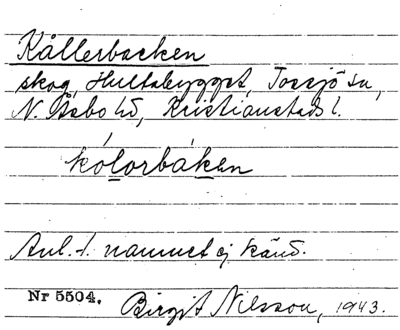 Kållerbacken
skog, Hultabygget, Tossjö sn,
N. Åsbo hd, Kristianstads l.
kólorbàken
Anl. t. namnet ej känd.
Nr 5504. Birgit Nilsson, 1943.